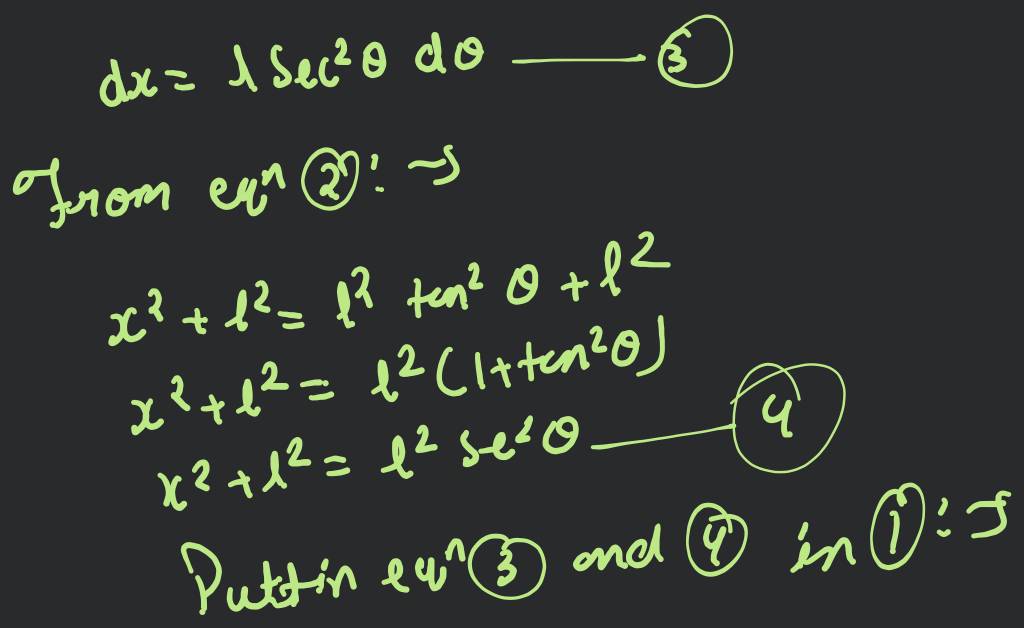 dx = l Sec²θ dθ —— ③
From eqⁿ ② : →
x² + l² = l² tan² θ + l²
x² + l² = l² (1 + tan²θ)
x² + l² = l² se²θ —— ④
Puttin eqⁿ ③ and ④ in ① : →